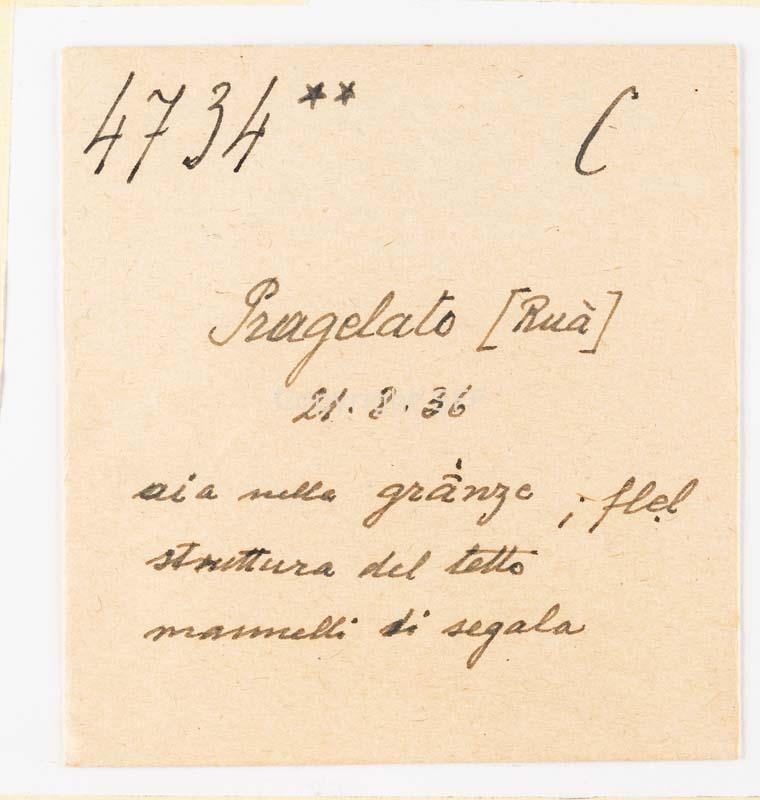 4734** C
Pragelato [Ruà]
21.8.36
aia nella grãnze ; flẹl
struttura del tetto
mannelli di segala